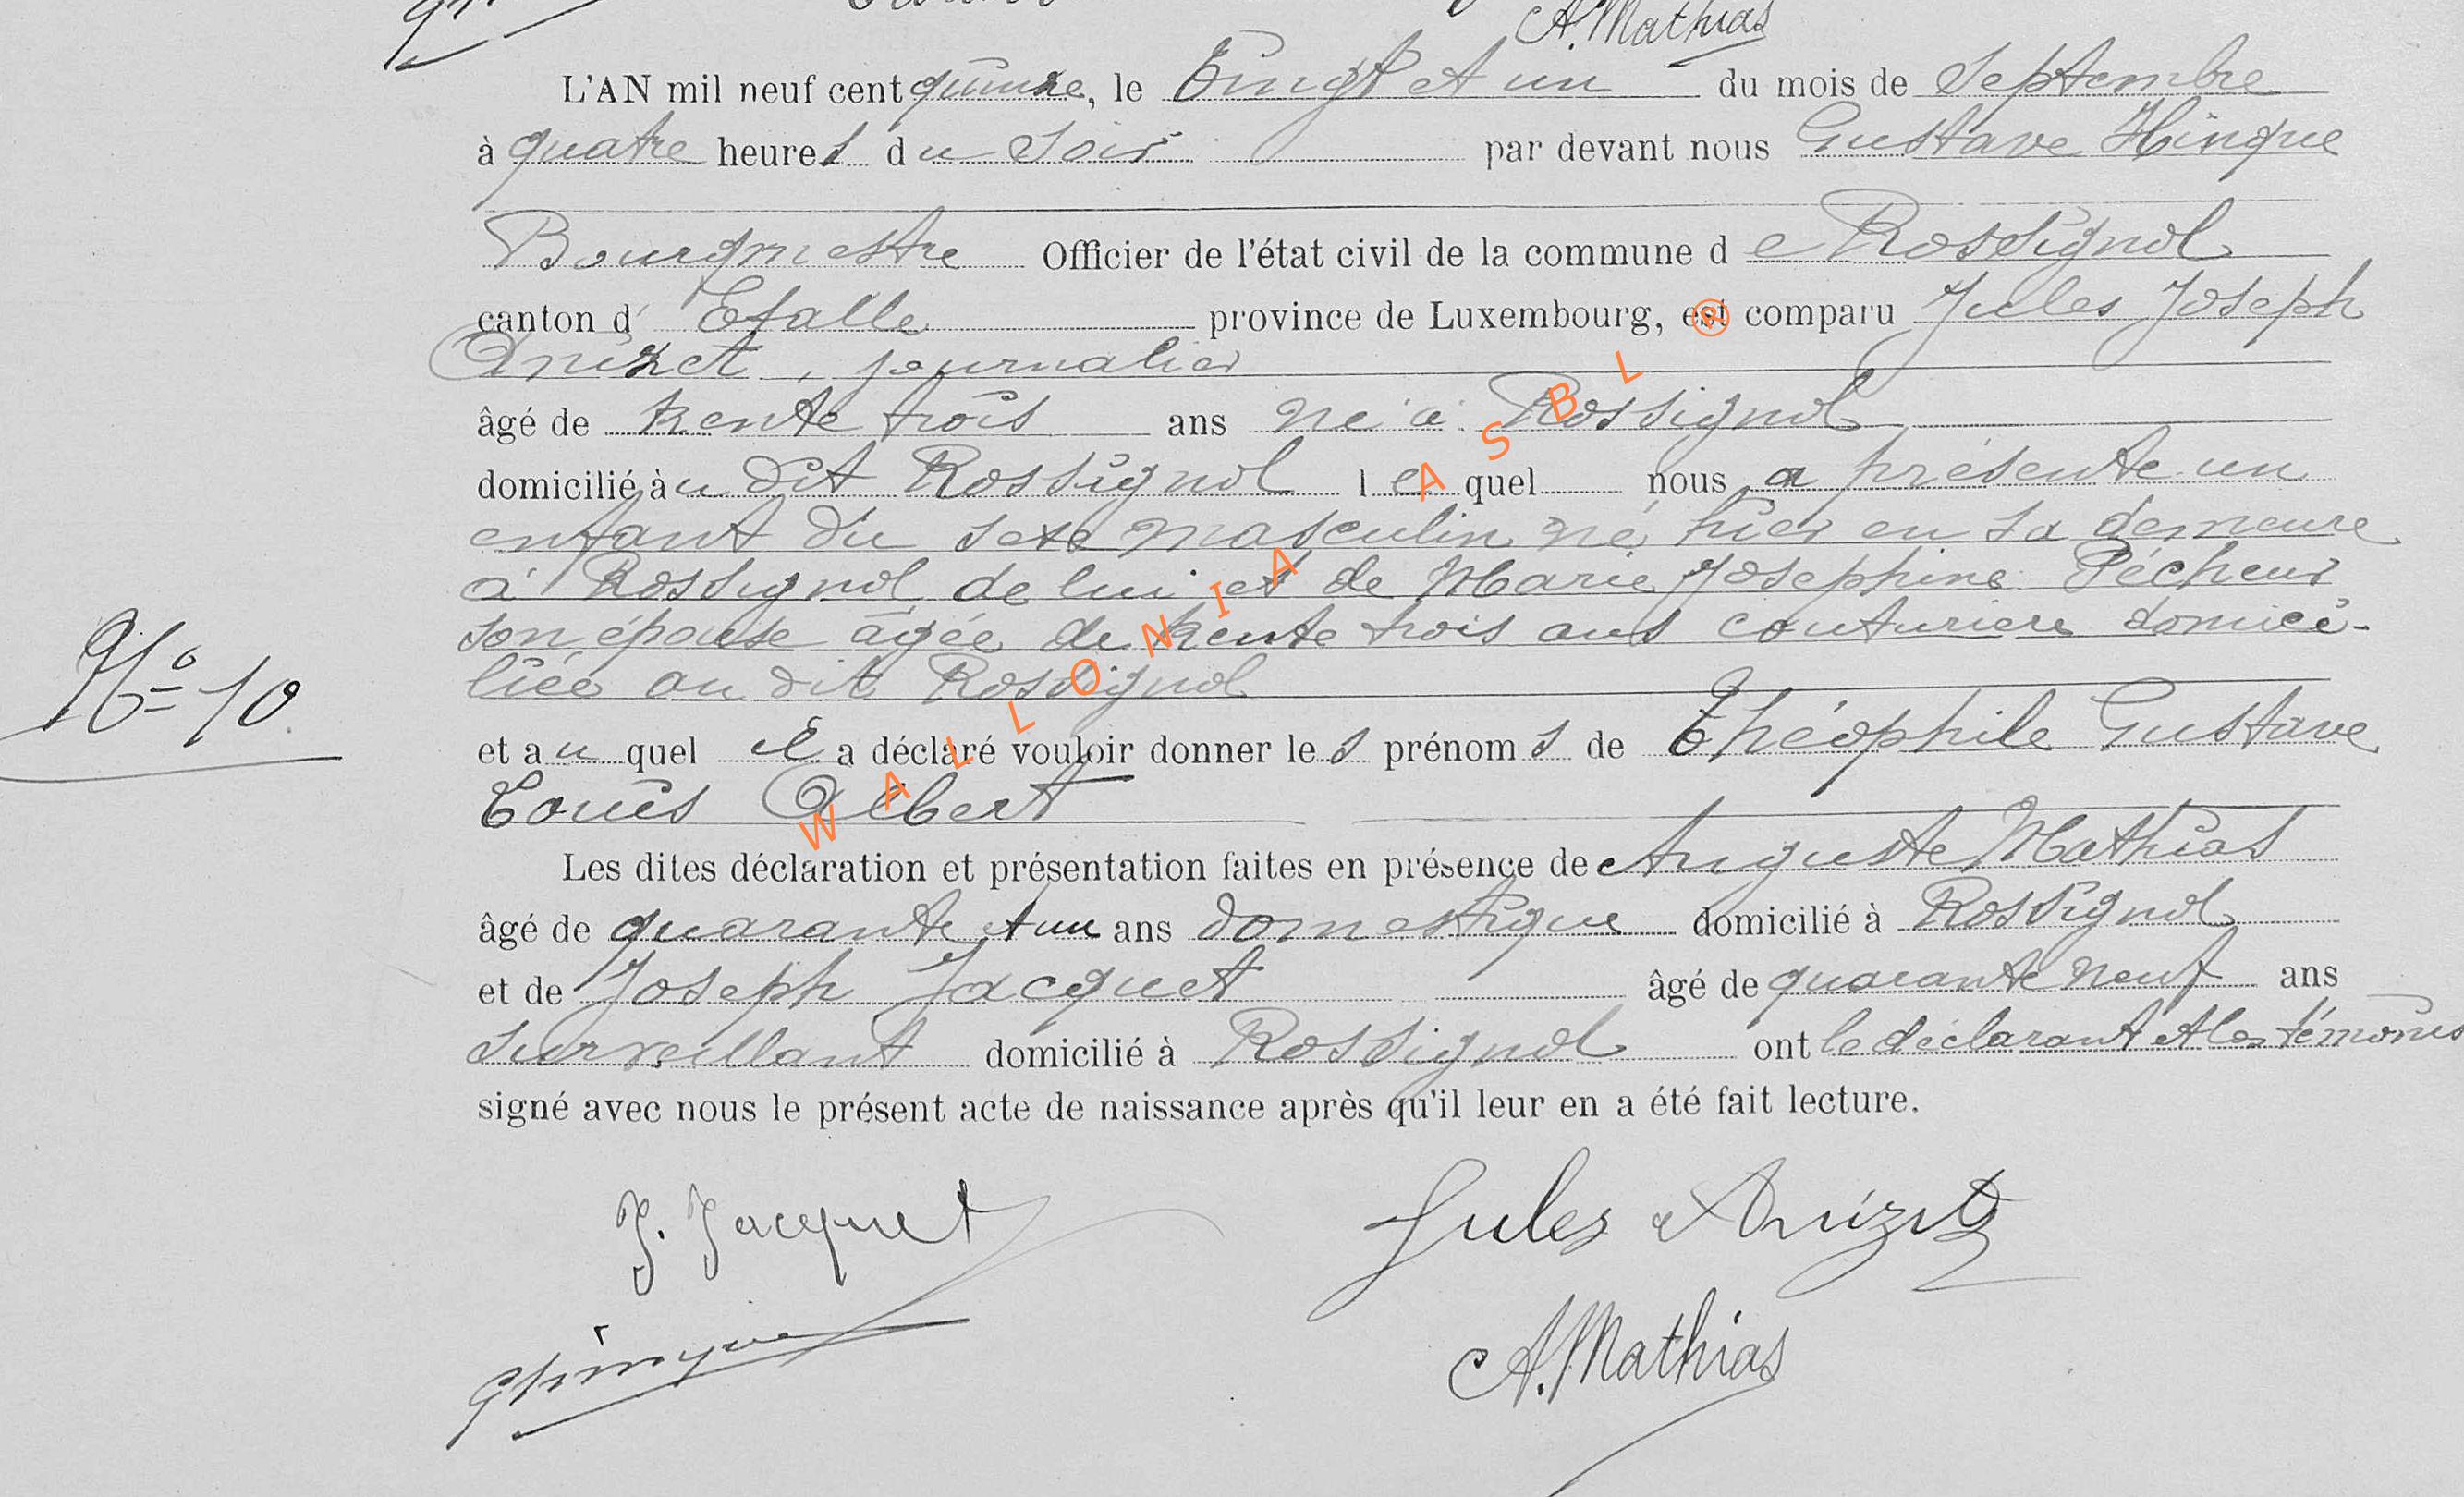 A. Mathias
L'AN mil neuf cent quinze, le Vingt et un du mois de Septembre
à quatre heures du Soir par devant nous Gustave Hinque
Bourgmestre Officier de l'état civil de la commune de Rossignol
canton d' Etalle province de Luxembourg, est comparu Jules Joseph
Anizet, journalier
âgé de trente trois ans né à Rossignol
domicilié àu dit Rossignol lequel nous a présenté un
enfant du sexe masculin né hier en sa demeure
à Rossignol de lui et de Marie Josephine Pécheur
son épouse âgée de trente trois ans couturière domici-
liée au dit Rossignol
N° 10
et au quel il a déclaré vouloir donner les prénoms de Théophile Gustave
Louis Albert
Les dites déclaration et présentation faites en présence de Auguste Mathias
âgé de quarante et un ans domestique domicilié à Rossignol
et de Joseph Jacquet âgé de quarante neuf ans
surveillant domicilié à Rossignol ont le déclarant et les témoins
signé avec nous le présent acte de naissance après qu'il leur en a été fait lecture.
J. Jacquet Jules Anizet
GHinque A. Mathias
WALLONIA ASBL ®